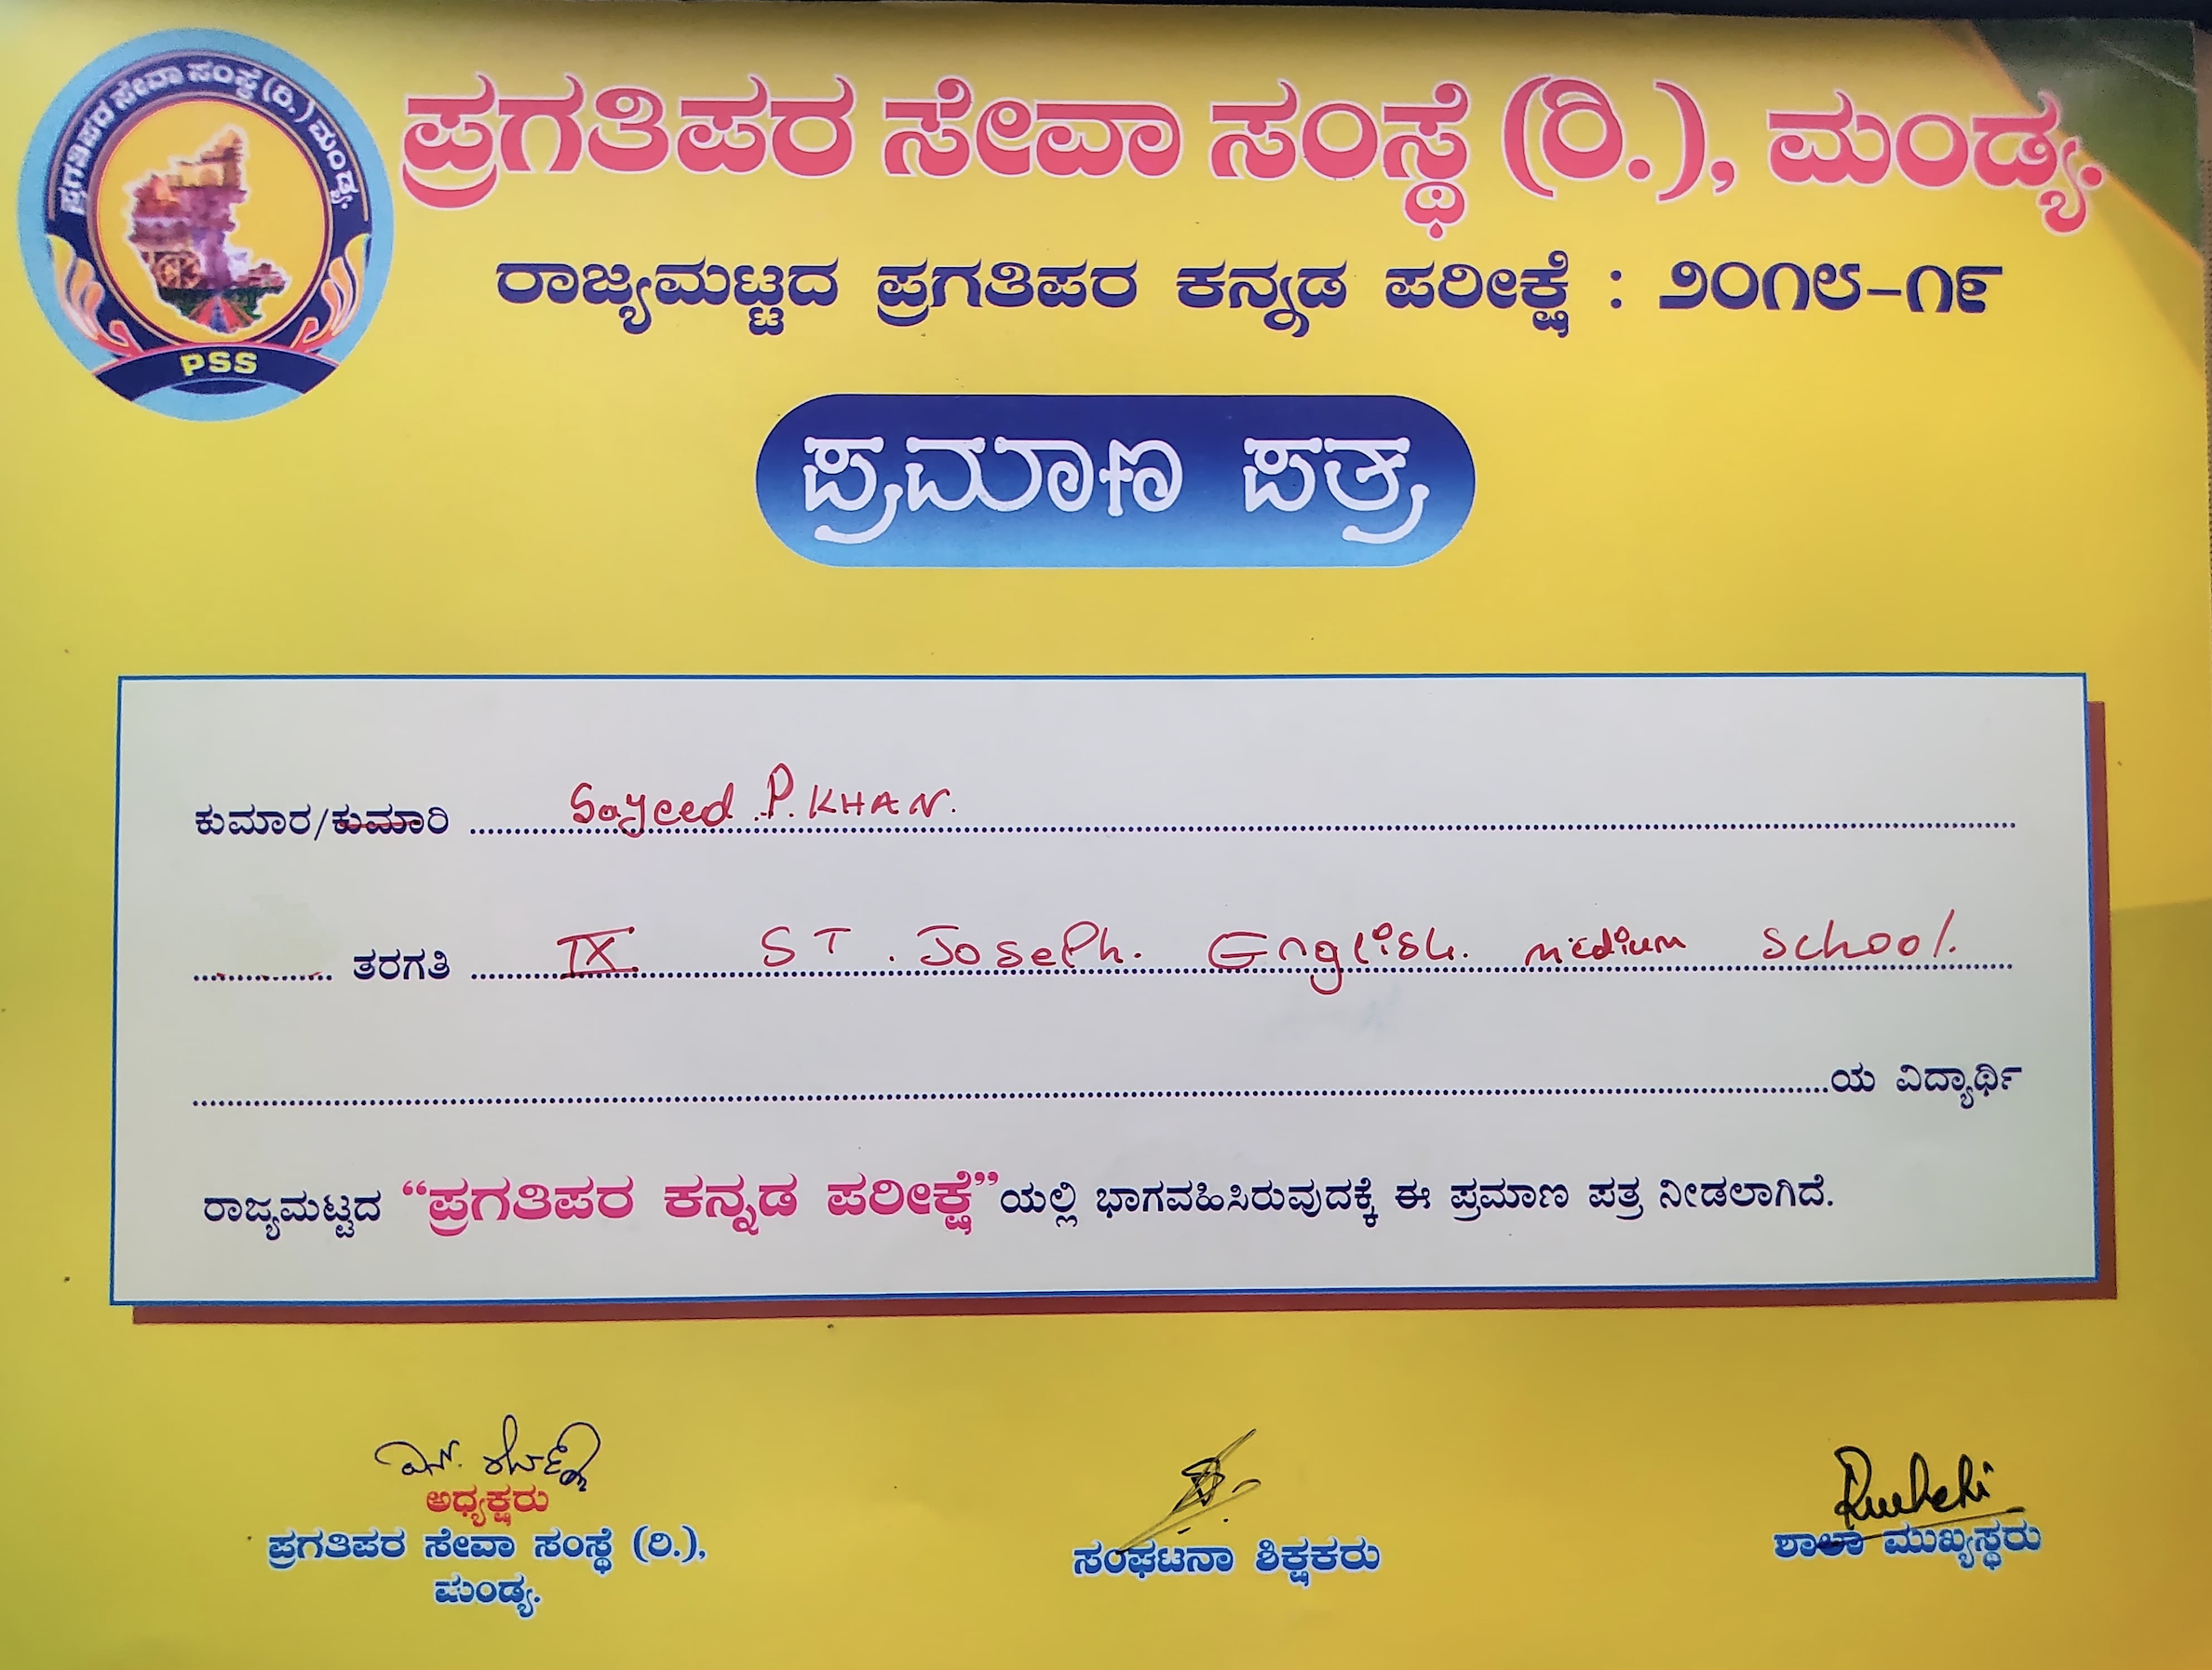 ಪ್ರಗತಿಪರ ಸೇವಾ ಸಂಸ್ಥೆ (ರಿ.) ಮಂಡ್ಯ.
PSS
ಪ್ರಗತಿಪರ ಸೇವಾ ಸಂಸ್ಥೆ (ರಿ.), ಮಂಡ್ಯ.
ರಾಜ್ಯಮಟ್ಟದ ಪ್ರಗತಿಪರ ಕನ್ನಡ ಪರೀಕ್ಷೆ : ೨೦೧೮-೧೯
ಪ್ರಮಾಣ ಪತ್ರ
ಕುಮಾರ/ಕುಮಾರಿ Sayeed P. KHAN.
ತರಗತಿ IX ST. Joseph. English. medium School.
ಯ ವಿದ್ಯಾರ್ಥಿ
ರಾಜ್ಯಮಟ್ಟದ “ಪ್ರಗತಿಪರ ಕನ್ನಡ ಪರೀಕ್ಷೆ”ಯಲ್ಲಿ ಭಾಗವಹಿಸಿರುವುದಕ್ಕೆ ಈ ಪ್ರಮಾಣ ಪತ್ರ ನೀಡಲಾಗಿದೆ.
ಅಧ್ಯಕ್ಷರು
ಪ್ರಗತಿಪರ ಸೇವಾ ಸಂಸ್ಥೆ (ರಿ.),
ಮಂಡ್ಯ.
ಸಂಘಟನಾ ಶಿಕ್ಷಕರು
ಶಾಲಾ ಮುಖ್ಯಸ್ಥರು